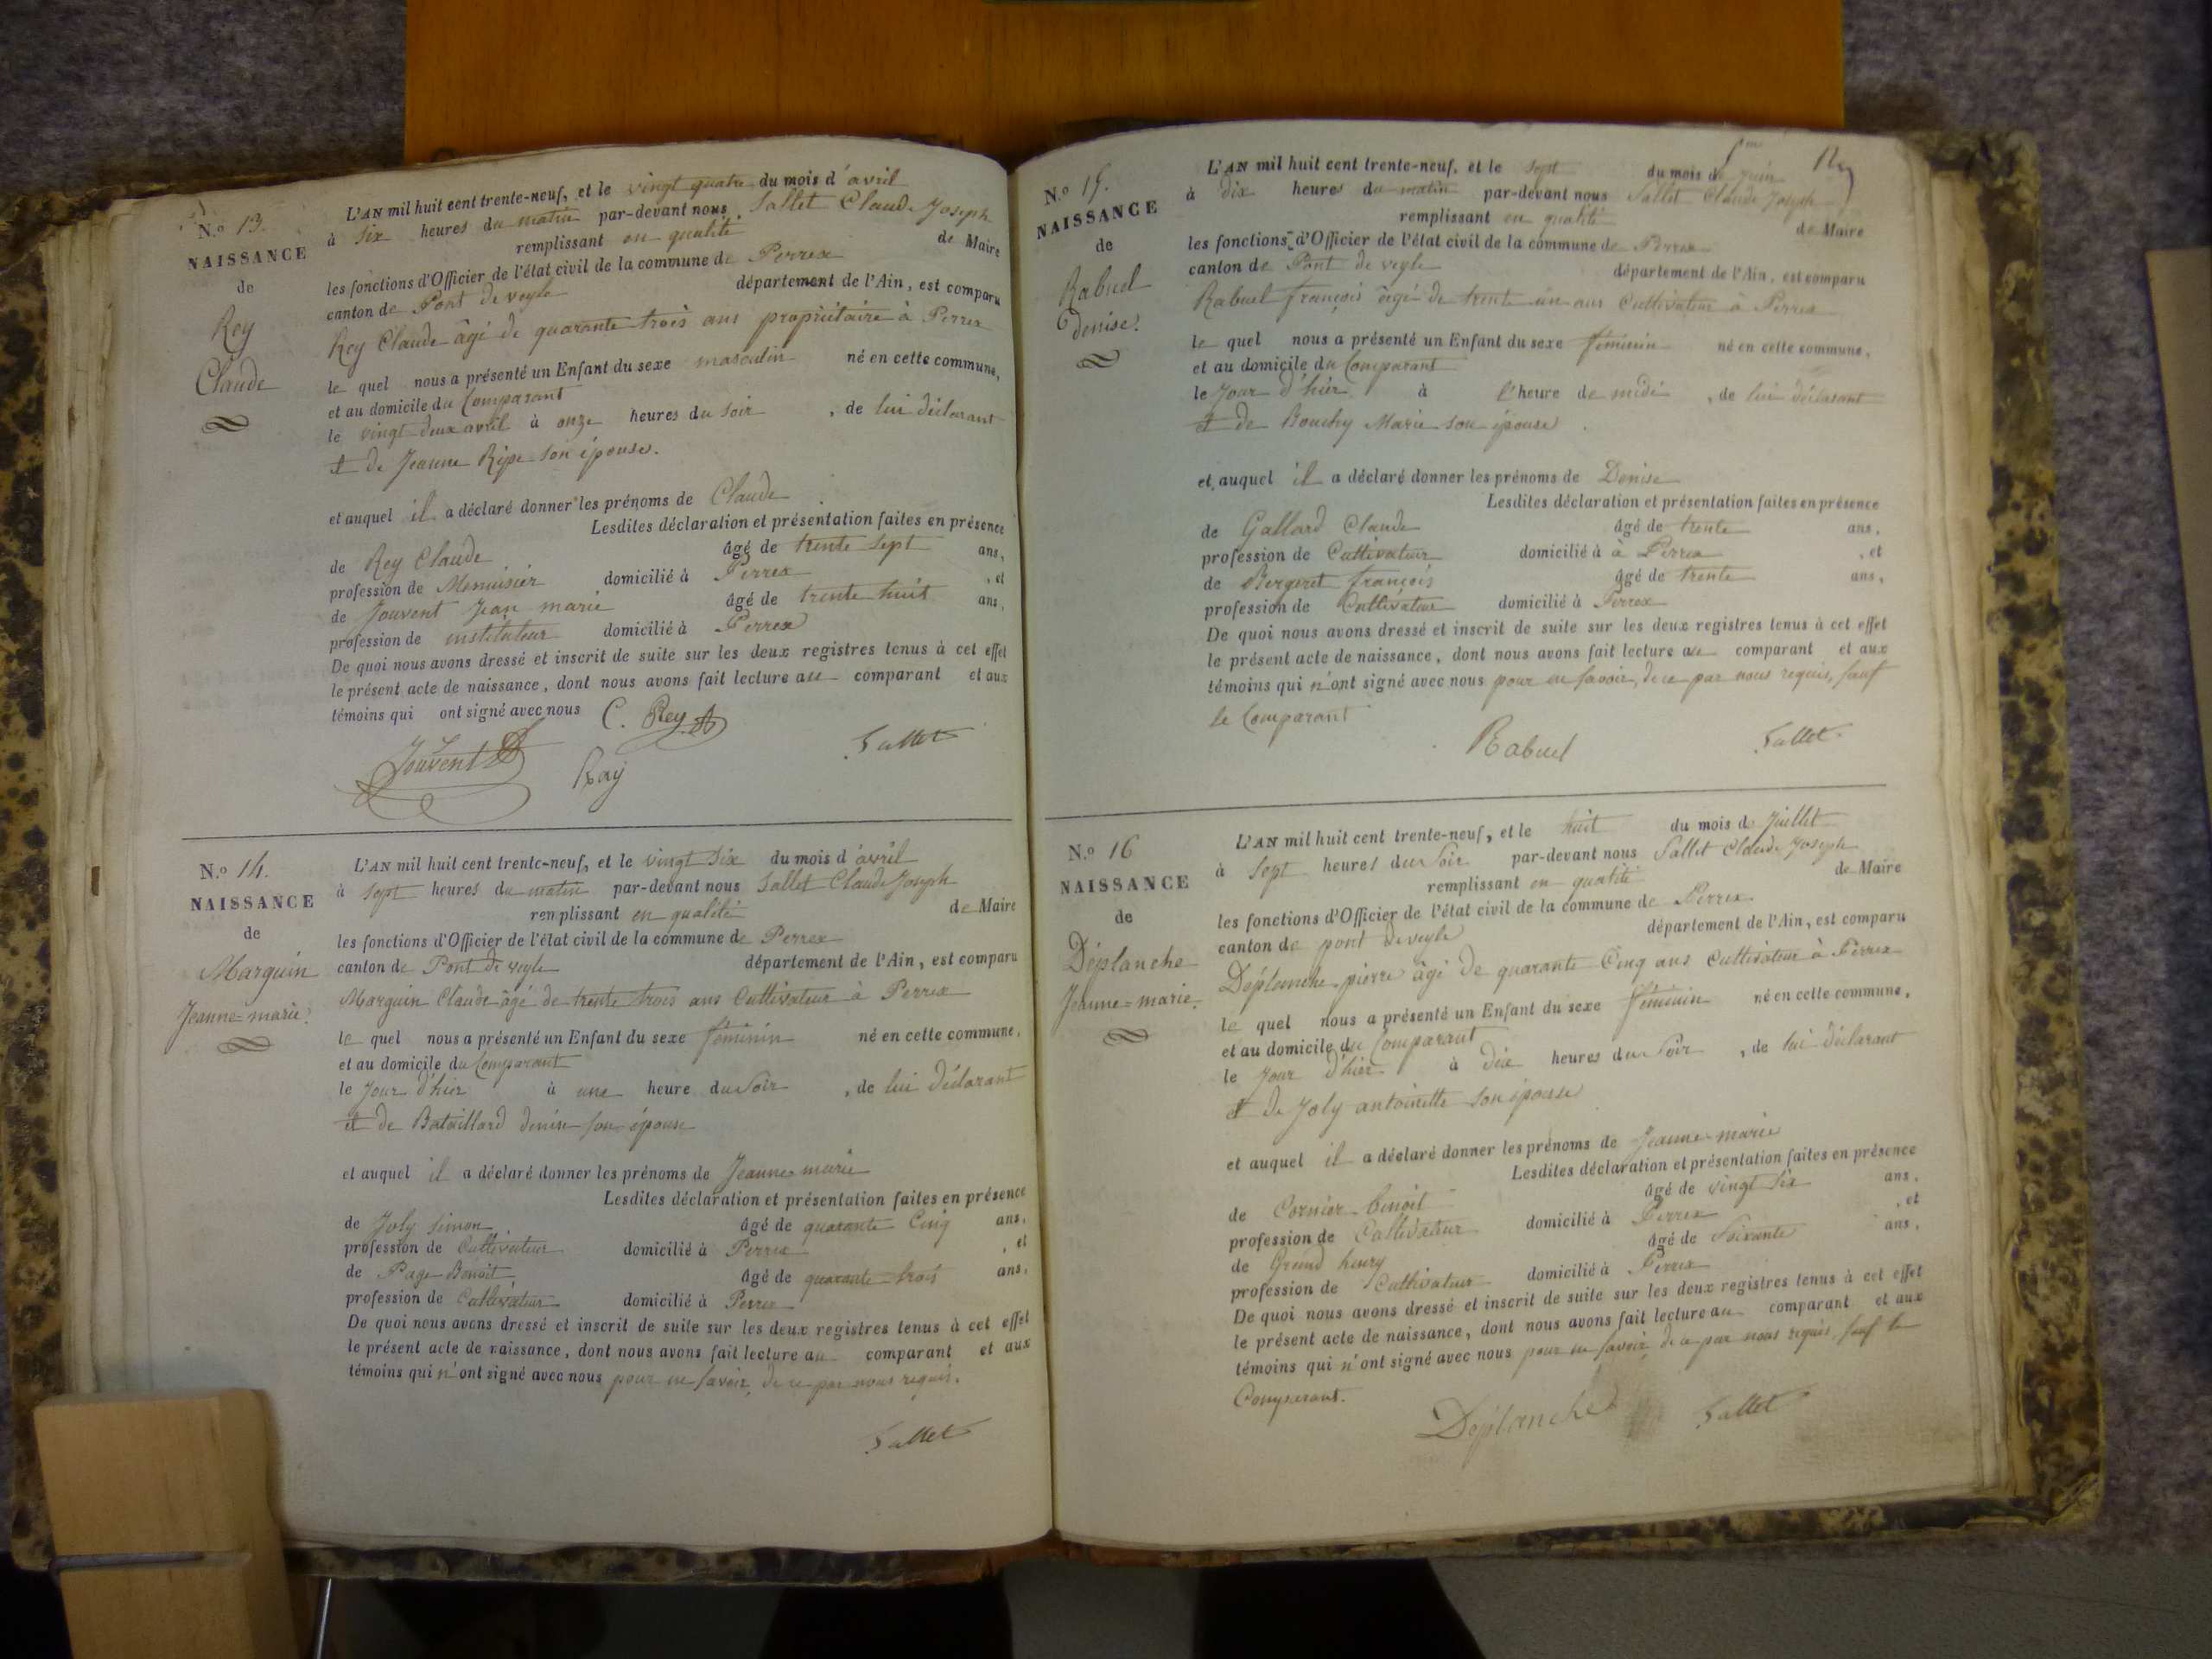 N.o 13.
NAISSANCE
de
Rey
Claude
L'AN mil huit cent trente-neuf, et le vingt quatre du mois d'avril
à six heures du matin par-devant nous Sallet Claude Joseph
remplissant en qualité de Maire
les fonctions d'Officier de l'état civil de la commune de Perrex
canton de Pont de veyle département de l'Ain, est comparu
Rey Claude âgé de quarante trois ans propriétaire à Perrex
le quel nous a présenté un Enfant du sexe masculin né en cette commune,
et au domicile du Comparant
le vingt deux avril à onze heures du soir, de lui déclarant
et de Jeanne Ripe son épouse.
et auquel il a déclaré donner les prénoms de Claude
Lesdites déclaration et présentation faites en présence
de Rey Claude âgé de trente sept ans,
profession de Menuisier domicilié à Perrex, et
de Jouvent Jean marie âgé de trente huit ans,
profession de instituteur domicilié à Perrex
De quoi nous avons dressé et inscrit de suite sur les deux registres tenus à cet effet
le présent acte de naissance, dont nous avons fait lecture au comparant et aux
témoins qui ont signé avec nous C. Rey
Jouvent Ray Sallet
N.o 14.
NAISSANCE
de
Marguin
Jeanne=marie.
L'AN mil huit cent trente-neuf, et le vingt six du mois d'avril
à sept heures du matin par-devant nous Sallet Claude Joseph
remplissant en qualité de Maire
les fonctions d'Officier de l'état civil de la commune de Perrex
canton de Pont de veyle département de l'Ain, est comparu
Marguin Claude âgé de trente trois ans Cultivateur à Perrex
le quel nous a présenté un Enfant du sexe féminin né en cette commune,
et au domicile du Comparant
le Jour d'hier à une heure du Soir, de lui déclarant
et de Bataillard denise son épouse
et auquel il a déclaré donner les prénoms de Jeanne-marie
Lesdites déclaration et présentation faites en présence
de Joly Simon âgé de quarante Cinq ans,
profession de Cultivateur domicilié à Perrex, et
de Page Benoit âgé de quarante trois ans,
profession de Cultivateur domicilié à Perrex
De quoi nous avons dressé et inscrit de suite sur les deux registres tenus à cet effet
le présent acte de naissance, dont nous avons fait lecture au comparant et aux
témoins qui n'ont signé avec nous pour ne savoir, de ce par nous requis.
Sallet
N.o 15.
NAISSANCE
de
Rabuel
Denise.
L'AN mil huit cent trente-neuf, et le sept du mois de juin
à dix heures du matin par-devant nous Sallet Claude Joseph
remplissant en qualité de Maire
les fonctions d'Officier de l'état civil de la commune de Perrex
canton de Pont de veyle département de l'Ain, est comparu
Rabuel françois âgé de trente un ans Cultivateur à Perrex
le quel nous a présenté un Enfant du sexe féminin né en cette commune,
et au domicile du Comparant
le Jour d'hier à l'heure de midi, de lui déclarant
et de Bouchy Marie son épouse.
et auquel il a déclaré donner les prénoms de Denise
Lesdites déclaration et présentation faites en présence
de Gallard Claude âgé de trente ans,
profession de Cultivateur domicilié à à Perrex, et
de Bergeret françois âgé de trente ans,
profession de Cultivateur domicilié à Perrex
De quoi nous avons dressé et inscrit de suite sur les deux registres tenus à cet effet
le présent acte de naissance, dont nous avons fait lecture au comparant et aux
témoins qui n'ont signé avec nous pour ne savoir, de ce par nous requis, sauf
le Comparant
Rabuel Sallet
N.o 16
NAISSANCE
de
Déplanche
Jeanne=marie.
L'AN mil huit cent trente-neuf, et le huit du mois de Juillet
à Sept heures du Soir par-devant nous Sallet Claude Joseph
remplissant en qualité de Maire
les fonctions d'Officier de l'état civil de la commune de Perrex
canton de pont de veyle département de l'Ain, est comparu
Déplanche pierre âgé de quarante Cinq ans Cultivateur à Perrex
le quel nous a présenté un Enfant du sexe féminin né en cette commune,
et au domicile du Comparant
le Jour d'hier à dix heures du Soir, de lui déclarant
et de Joly antoinette son épouse
et auquel il a déclaré donner les prénoms de Jeanne-marie
Lesdites déclaration et présentation faites en présence
de Cornier benoit âgé de vingt Six ans,
profession de Cultivateur domicilié à Perrex, et
de Grand henry âgé de Soixante ans,
profession de Cultivateur domicilié à Perrex
De quoi nous avons dressé et inscrit de suite sur les deux registres tenus à cet effet
le présent acte de naissance, dont nous avons fait lecture au comparant et aux
témoins qui n'ont signé avec nous pour ne savoir, de ce par nous requis, sauf le
Comparant.
Déplanche Sallet